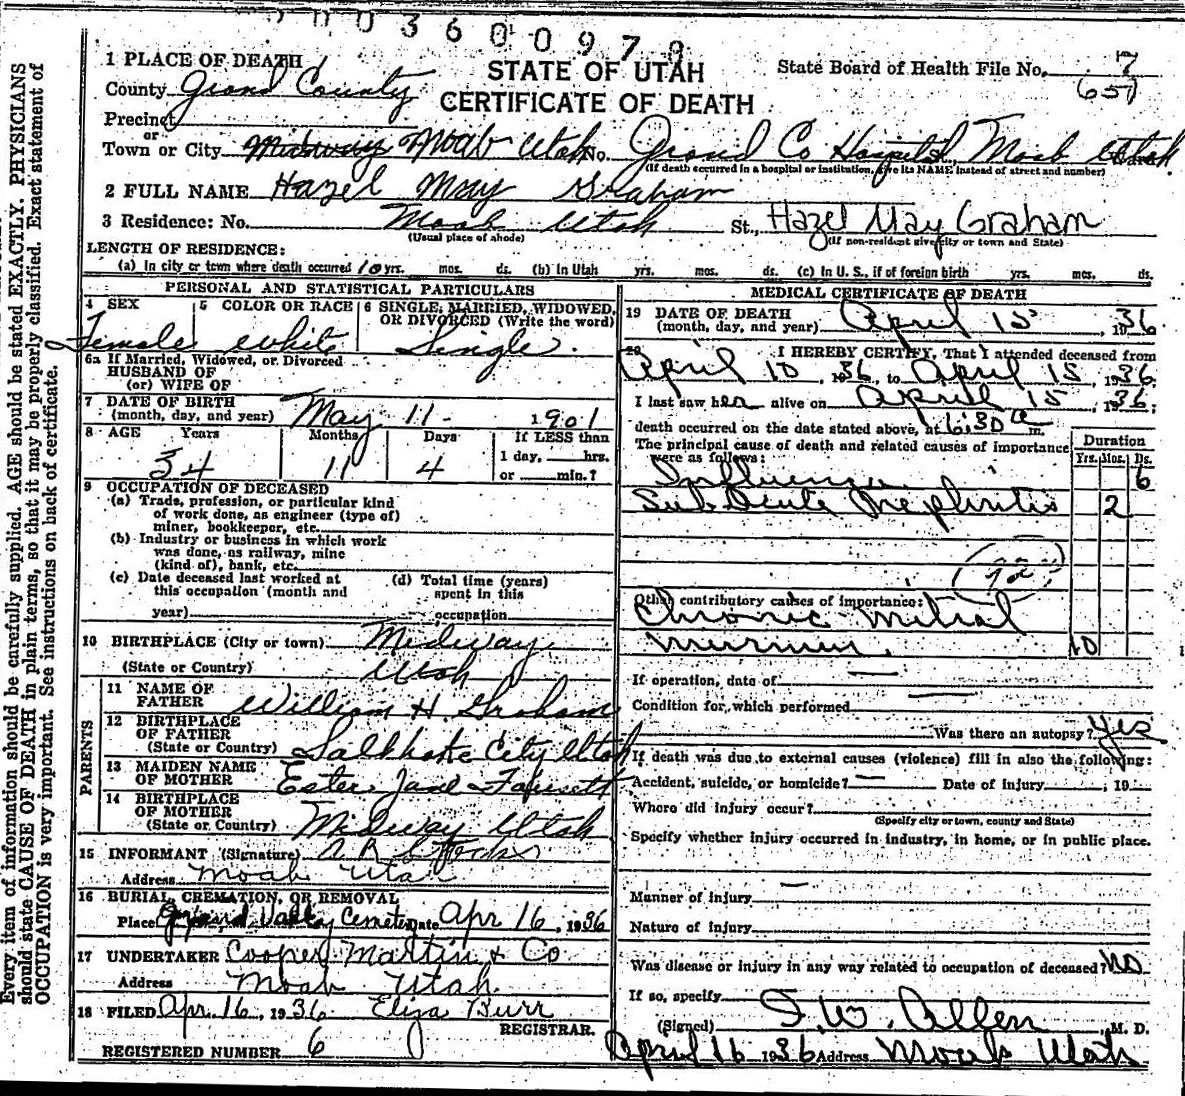 003600979
1 PLACE OF DEATH
County Grand County
STATE OF UTAH
CERTIFICATE OF DEATH
State Board of Health File No. 7
(65)
Precinct
or
Town or City Midway Moab Utah No. Grand Co Hospital St., Moab Utah Ward
(If death occurred in a hospital or institution, give its NAME instead of street and number)
2 FULL NAME Hazel May Graham
3 Residence: No. Moab Utah St., Hazel May Graham
(Usual place of abode) (If non-resident give city or town and State)
LENGTH OF RESIDENCE:
(a) In city or town where death occurred 10 yrs. mos. ds. (b) In Utah yrs. mos. ds. (c) In U. S., if of foreign birth yrs. mos. ds.
PERSONAL AND STATISTICAL PARTICULARS
4 SEX 5 COLOR OR RACE 6 SINGLE, MARRIED, WIDOWED,
OR DIVORCED (Write the word)
Female White Single
6a If Married, Widowed, or Divorced
HUSBAND OF
(or) WIFE OF
7 DATE OF BIRTH
(month, day, and year) May 11 - 1901
8 AGE Years Months Days If LESS than
1 day, hrs.
34 11 4 or min.?
9 OCCUPATION OF DECEASED
(a) Trade, profession, or particular kind
of work done, as engineer (type of)
miner, bookkeeper, etc.
(b) Industry or business in which work
was done, as railway, mine
(kind of), bank, etc.
(c) Date deceased last worked at
this occupation (month and
year)
(d) Total time (years)
spent in this
occupation
10 BIRTHPLACE (City or town) Midway
(State or Country) Utah
PARENTS
11 NAME OF
FATHER William H. Graham
12 BIRTHPLACE
OF FATHER
(State or Country) Salt Lake City Utah
13 MAIDEN NAME
OF MOTHER Ester Jane Fausett
14 BIRTHPLACE
OF MOTHER
(State or Country) Midway Utah
15 INFORMANT (Signature) A R
Address Moab Utah
16 BURIAL, CREMATION, OR REMOVAL
Place Valley Cemetery Date Apr 16, 1936
17 UNDERTAKER Cooper Martin & Co
Address Moab Utah
18 FILED Apr. 16, 1936 Eliza Burr
REGISTRAR.
REGISTERED NUMBER 6
MEDICAL CERTIFICATE OF DEATH
19 DATE OF DEATH
(month, day, and year) April 15, 1936
20 I HEREBY CERTIFY, That I attended deceased from
April 10, 1936, to April 15, 1936.
I last saw her alive on April 15, 1936;
death occurred on the date stated above, at 6:30 a m.
The principal cause of death and related causes of importance
were as follows:
Duration
Yrs. Mos. Ds.
Influenza 6
Sub Acute Nephritis 2
Other contributory causes of importance:
Chronic Mitral
murmur. 10
If operation, date of
Condition for which performed
Was there an autopsy? Yes
If death was due to external causes (violence) fill in also the following:
Accident, suicide, or homicide? Date of injury, 19
Where did injury occur?
(Specify city or town, county and State)
Specify whether injury occurred in industry, in home, or in public place.
Manner of injury
Nature of injury
Was disease or injury in any way related to occupation of deceased? No
If so, specify
(Signed) I. W. Allen, M. D.
April 16 1936 Address Moab Utah
Every item of information should be carefully supplied. AGE should be stated EXACTLY. PHYSICIANS
should state CAUSE OF DEATH in plain terms, so that it may be properly classified. Exact statement of
OCCUPATION is very important. See instructions on back of certificate.